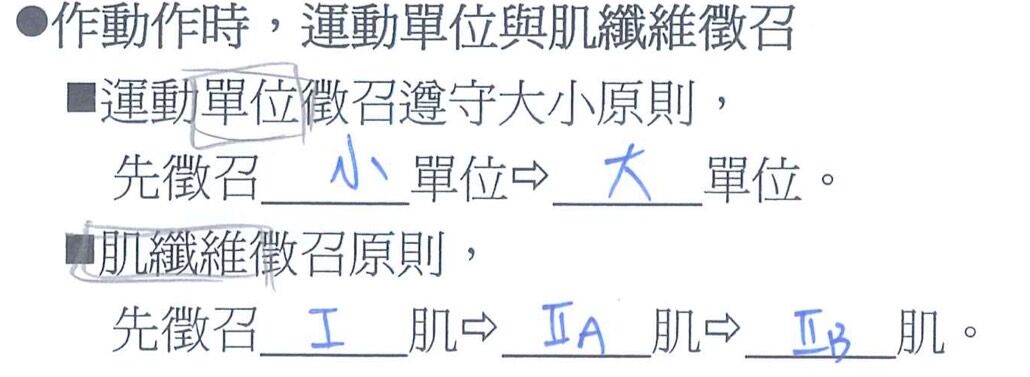 ●作動作時，運動單位與肌纖維徵召
■運動單位徵召遵守大小原則，
先徵召 小 單位⇨ 大 單位。
■肌纖維徵召原則，
先徵召 I 肌⇨ IIA 肌⇨ IIB 肌。